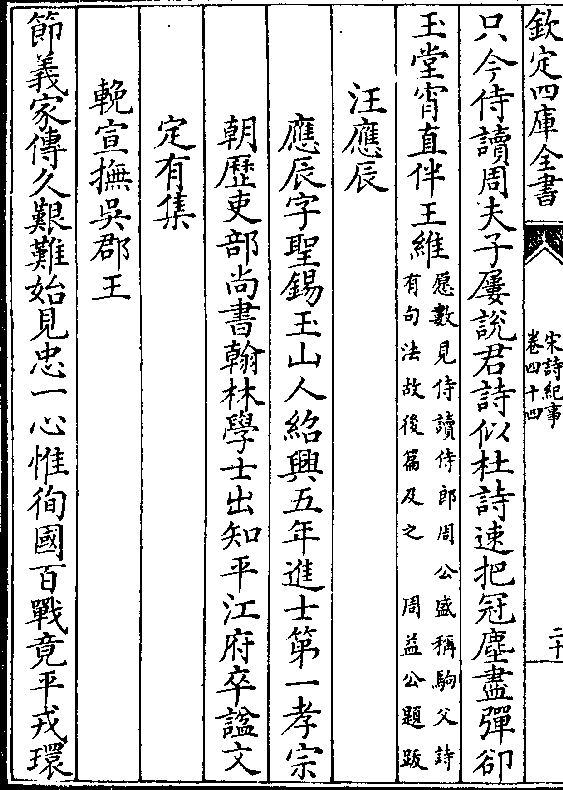 欽定四庫全書
宋詩紀事
卷四十四
二十
只今侍讀周夫子屢說君詩似杜詩速把冠塵盡彈卻
玉堂宵直伴王維
愿數見侍讀侍郎周公盛稱駒父詩
有句法故後篇及之 周益公題跋
汪應辰
應辰字聖錫玉山人紹興五年進士第一孝宗
朝歷吏部尚書翰林學士出知平江府卒諡文
定有集
輓宣撫吳郡王
節義家傳久艱難始見忠一心惟徇國百戰竟平戎環